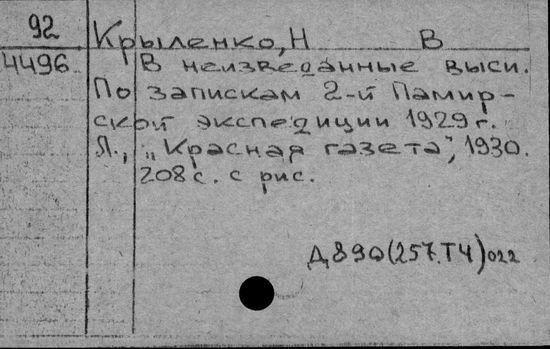 92
Крыленко, Н В
4496 В неизведанные выси.
По запискам 2-й Памир-
ской экспедиции 1929 г.
Л., „Красная газета", 1930.
208 с. с рис.
Д890(257.Т4)022